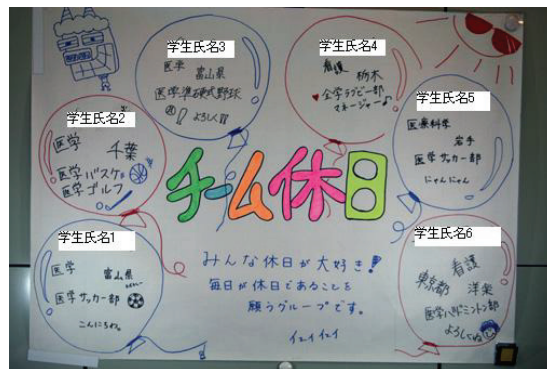 学生氏名3
医学
富山県
医学準硬式野球
よろしく!!
学生氏名4
看護
栃木
♥全学ラグビー部
マネージャー♪
学生氏名2
医学
千葉
医学バスケ
医学ゴルフ
学生氏名5
医療科学
岩手
医学サッカー部
にゃんにゃん
チーム休日
学生氏名1
医学
富山県
医学サッカー部
こんにちわ。
みんな休日が大好き!
毎日が休日であることを
願うグループです。
イェイイェイ
学生氏名6
看護
東京都
洋楽
医学バドミントン部
よろしてね